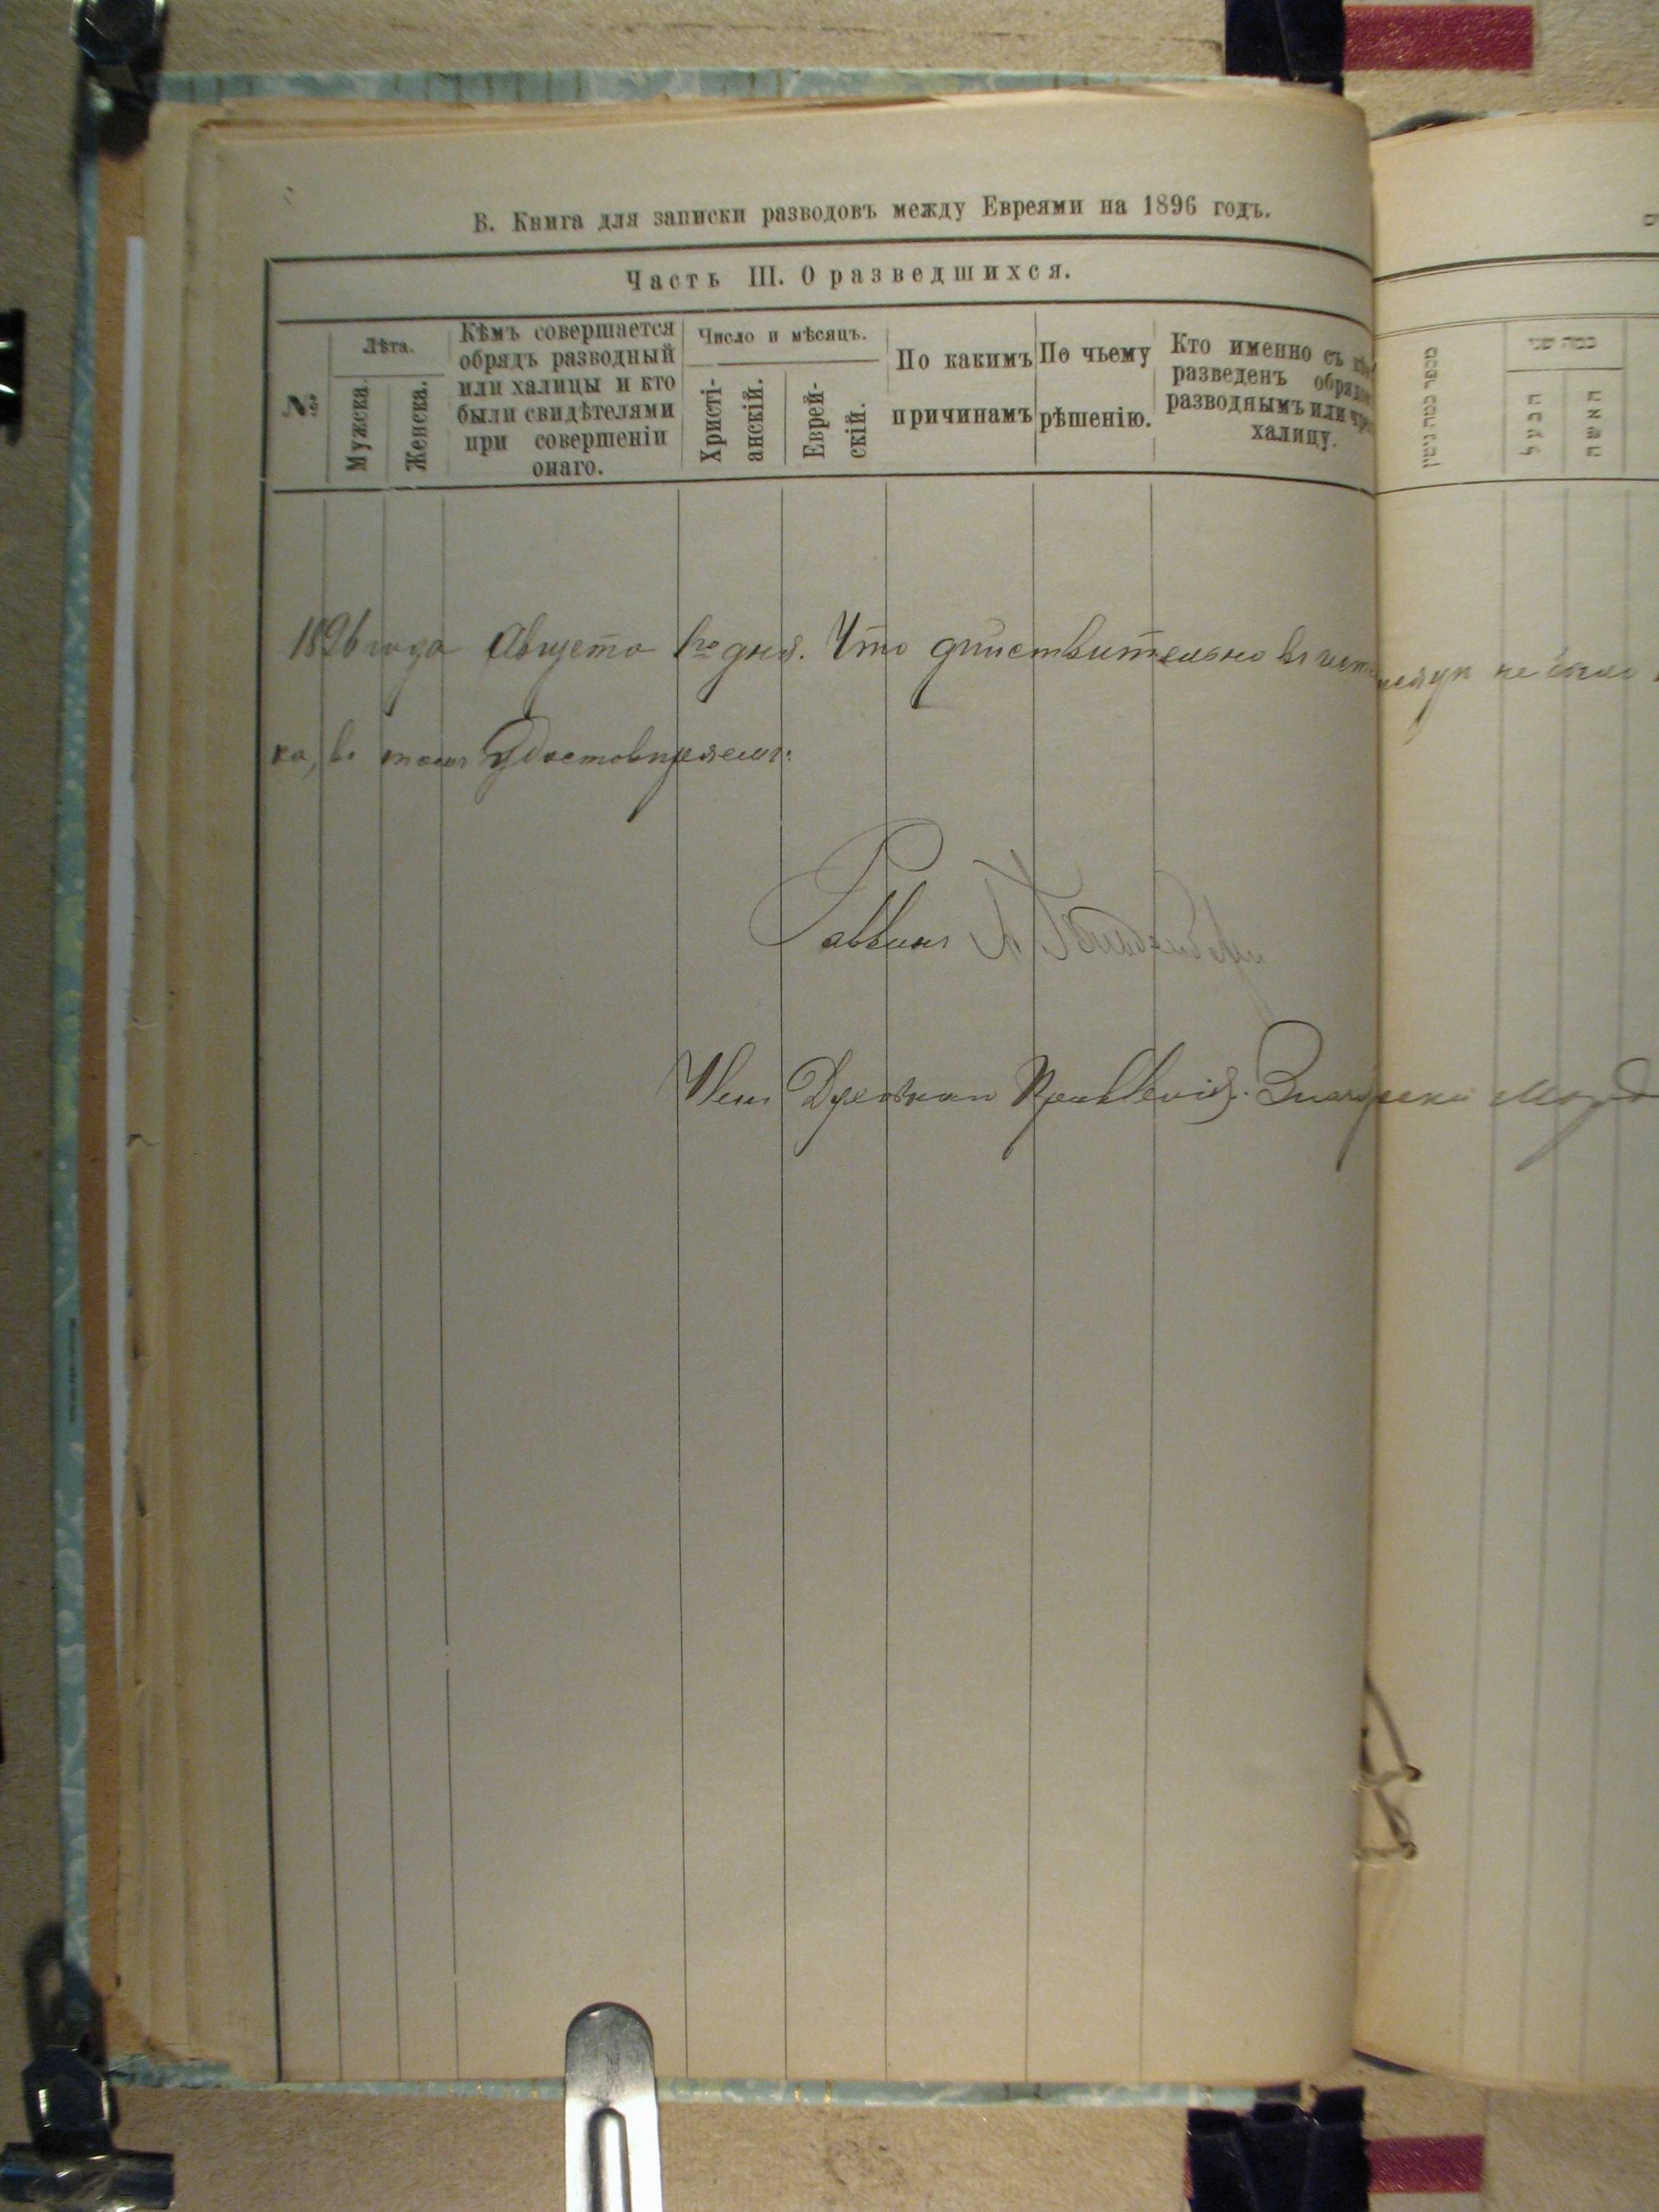 В. Книга для записки разводовъ между Евреями на 1896 годъ.
Часть III. О разведшихся.
№
Лѣта.
Мужска.
Женска.
Кѣмъ совершается
обрядъ разводный
или халицы и кто
были свидѣтелями
при совершеніи
онаго.
Число и мѣсяцъ.
Христі-
анскій.
Еврей-
скій.
По какимъ
причинамъ
По чьему
рѣшенію.
Кто именно съ кѣмъ
разведенъ обрядомъ
разводнымъ или чрез
халицу.
מספר כמה גיטין
כמה שני
הבעל
האשה
1896 года Августа 1го дня. Что дѣйствительно въ не было
ка, въ томъ удостовѣряемъ:
Раввинъ
Члены Духовнаго Правленія: